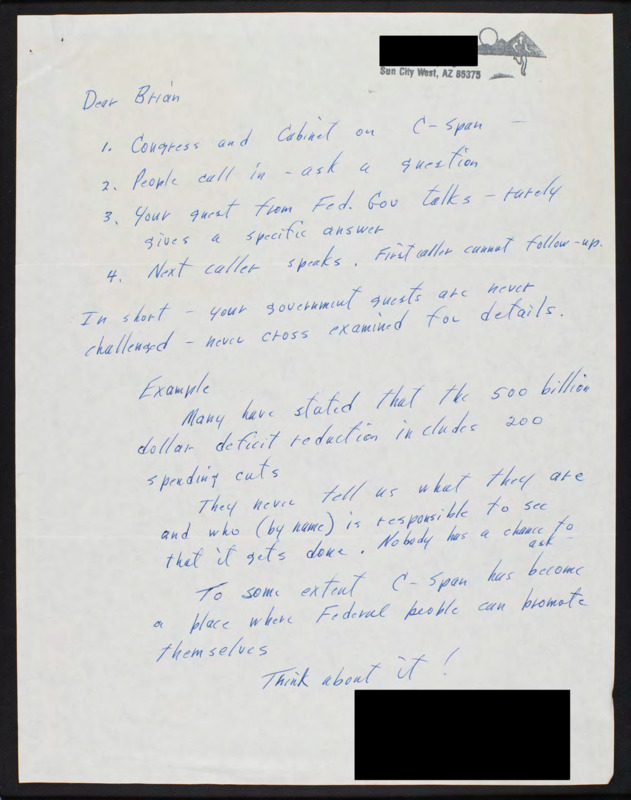 Sun City West, AZ 85375
Dear Brian
1. Congress and Cabinet on C-Span -
2. People call in - ask a question
3. Your guest from Fed. Gov talks - rarely
gives a specific answer
4. Next caller speaks. First caller cannot follow-up.
In short - your government guests are never
challenged - never cross examined for details.
Example
Many have stated that the 500 billion
dollar deficit reduction includes 200
spending cuts
They never tell us what they are
and who (by name) is responsible to see
that it gets done. Nobody has a chance to
ask -
To some extent C-Span has become
a place where Federal people can promote
themselves
Think about it!